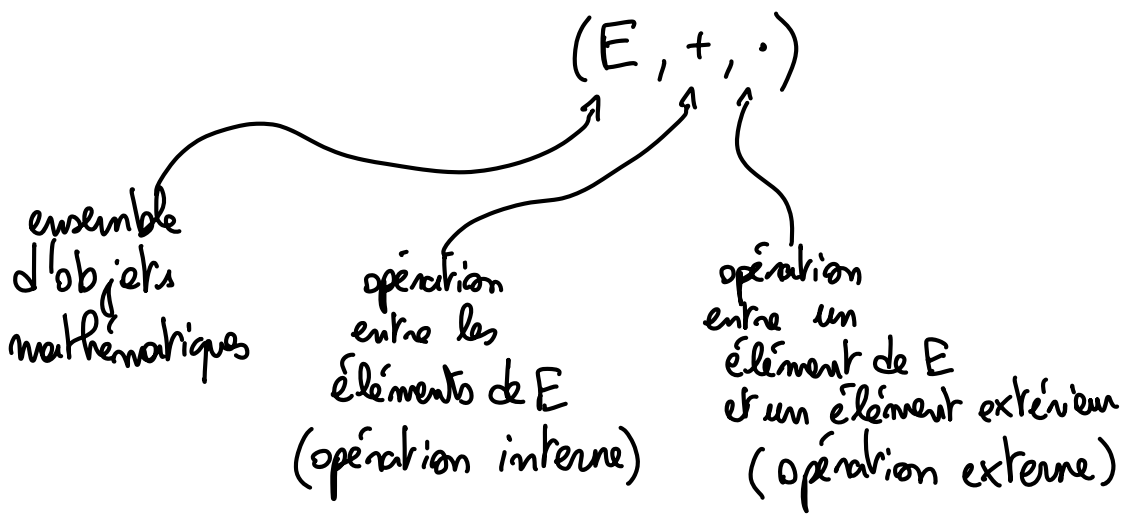 (E, +, ·)
ensemble
d'objets
mathématiques
opération
entre les
éléments de E
(opération interne)
opération
entre un
élément de E
et un élément extérieur
(opération externe)